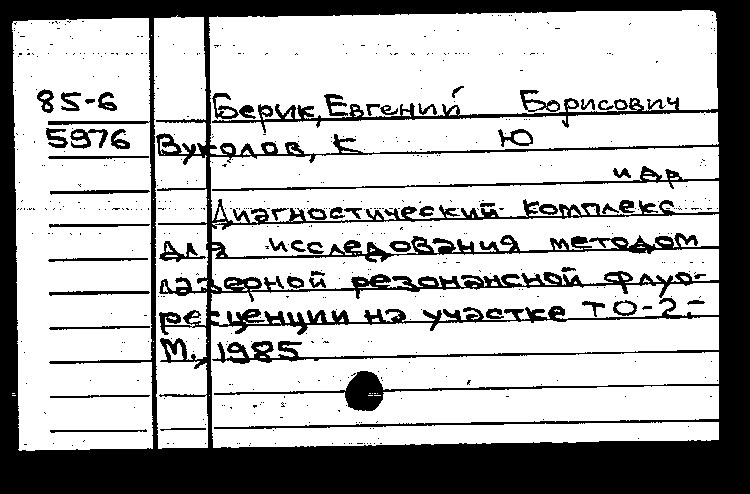 85-6 Берик, Евгений Борисович
5976 Вуколов, К Ю
и др
Диагностический комплекс
для исследования методом
лазерной резонансной флуо-
ресценции на участке ТО-2.-
М., 1985.